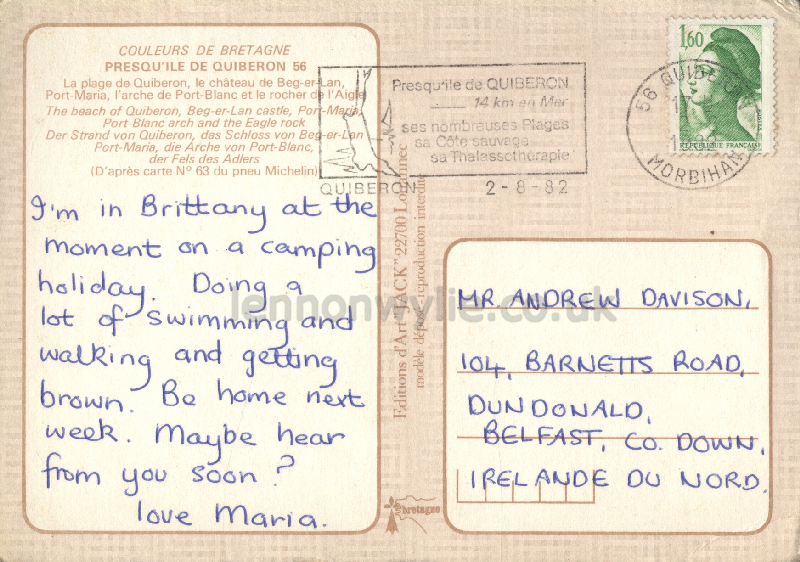 COULEURS DE BRETAGNE
PRESQU'ILE DE QUIBERON 56
La plage de Quiberon, le château de Beg-er-Lan,
Port-Maria, l'arche de Port-Blanc et le rocher de l'Aigle
The beach of Quiberon, Beg-er-Lan castle, Port-Maria,
Port Blanc arch and the Eagle rock
Der Strand von Quiberon, das Schloss von Beg-er-Lan
Port-Maria, die Arche von Port-Blanc,
der Fels des Adlers
(D'après carte N° 63 du pneu Michelin)
I'm in Brittany at the
moment on a camping
holiday. Doing a
lot of swimming and
walking and getting
brown. Be home next
week. Maybe hear
from you soon?
love Maria.
Presqu'ile de QUIBERON
14 km en Mer
ses nombreuses Plages
sa Côte sauvage
sa Thalassothérapie
QUIBERON
2-8-82
1,60
REPUBLIQUE FRANÇAISE
56 QUIBERON
17
MORBIHAN
Editions d'Art "JACK" 22700 Louannec
modèle déposé reproduction interdite
MR. ANDREW DAVISON,
104, BARNETTS ROAD,
DUNDONALD,
BELFAST, CO. DOWN,
IRELANDE DU NORD.
bretagne
lennonwylie.co.uk